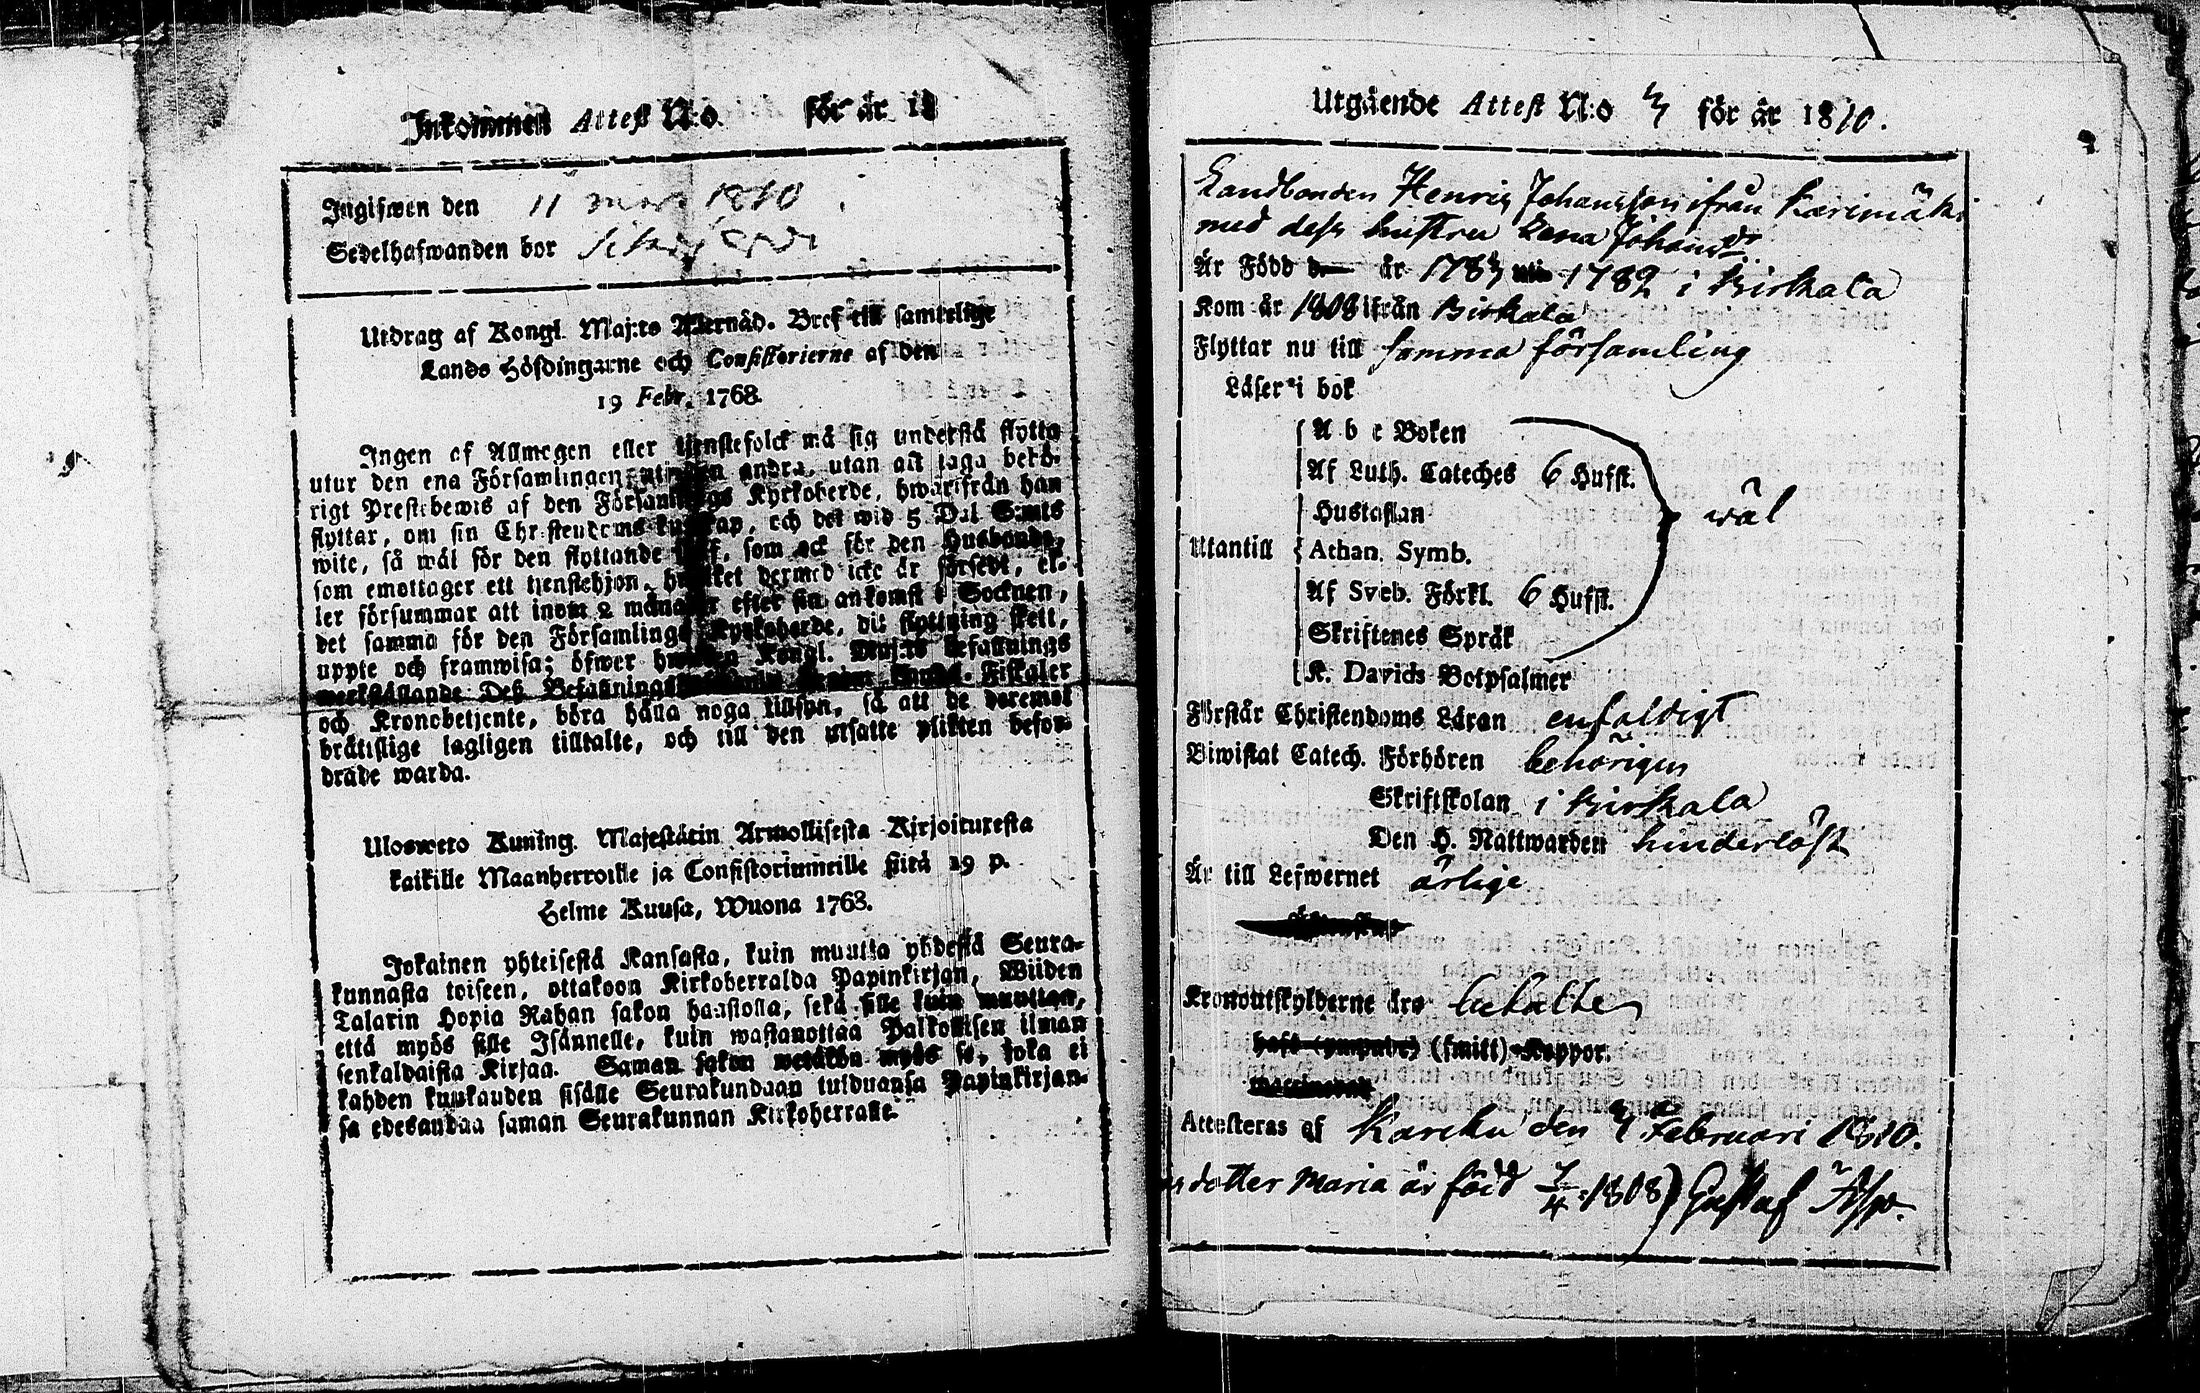 Inkommen Attest N:o för år 18
Ingifwen den 11 mars 1810
Sedelhafwanden bor
Utdrag af Kongl. Maj:ts Allernåd. Bref till samtelige
Lands Höfdingarne och Consistorierne af den
19 Febr. 1768.
Ingen af Allmogen eller tjenstefolck må sig understå flytta
utur den ena Församlingen, uti den andra, utan att taga behö-
rigt Prestebewis af den Församlings Kyrkoherde, hwarifrån han
flyttar, om sin Christendoms kunskap, och det wid 5 Dal S:mts
wite, så wäl för den flyttande sjelf, som ock för den Husbonde,
som emottager ett tjenstehjon, hwilket dermed icke är försedt, el-
ler försummar att inom 2 månader efter sin ankomst i Socknen,
det samma för den Församlings Kyrkoherde, dit flyttning skett,
uppte och framwisa; öfwer hwilken Kongl. Maj:ts Befallnings
werkställande Deß Befallnings Fiskaler
och Kronobetjente, böra hålla noga tillsyn, så att de deremot
bråtislige lagligen tilltalte, och till den utsatte plikten befor-
drade warda.
Ulosweto Kuning. Majestätin Armollisesta Kirjoituxesta
kaikille Maanherroille ja Consistoriumeille sitä 19 p.
Helme Kuusa, Wuona 1763.
Jokainen yhteisestä Kansasta, kuin muutta yhdestä Seura-
kunnasta toiseen, ottakoon Kirkoherralda Papinkirjan, Wiiden
Talarin Hopia Rahan sakon haastolla, sekä sille kuin muuttaa,
että myös sille Isännelle, kuin wastanottaa Palkollisen ilman
senkaldaista Kirjaa. Saman sakon wetäkön myös se, joka ei
kahden kuukauden sisälle Seurakundaan tulduansa Papinkirjan-
sa edesandaa saman Seurakunnan Kirkoherralle.
Utgående Attest N:o för år 1810.
Landbonden Henric Johansson ifrån Karimäki
med dess hustru Lena Johansdr
Är Född år 1782 i Birkala
Kom år 1808 ifrån Birkala
Flyttar nu till samma församling
Läser i bok
A b c Boken
Af Luth. Cateches 6 Hufst.
Hustaflan wäl
Utantill Athan. Symb.
Af Sveb. Förkl. 6 Hufst.
Skriftenes Språk
K. Davids Botpsalmer
Förstår Christendoms Läran enfaldigt
Biwistat Catech. Förhören behörigen
Skriftskolan i Birkala
Den H. Nattwarden hinderlöst
Är till Lefwernet ärlige
Kronoutskylderne äro betalte
(smitt) Koppor.
Attesteras af Karcku den Februari 1810.
dotter Maria är född 7/4 1808) Gustaf